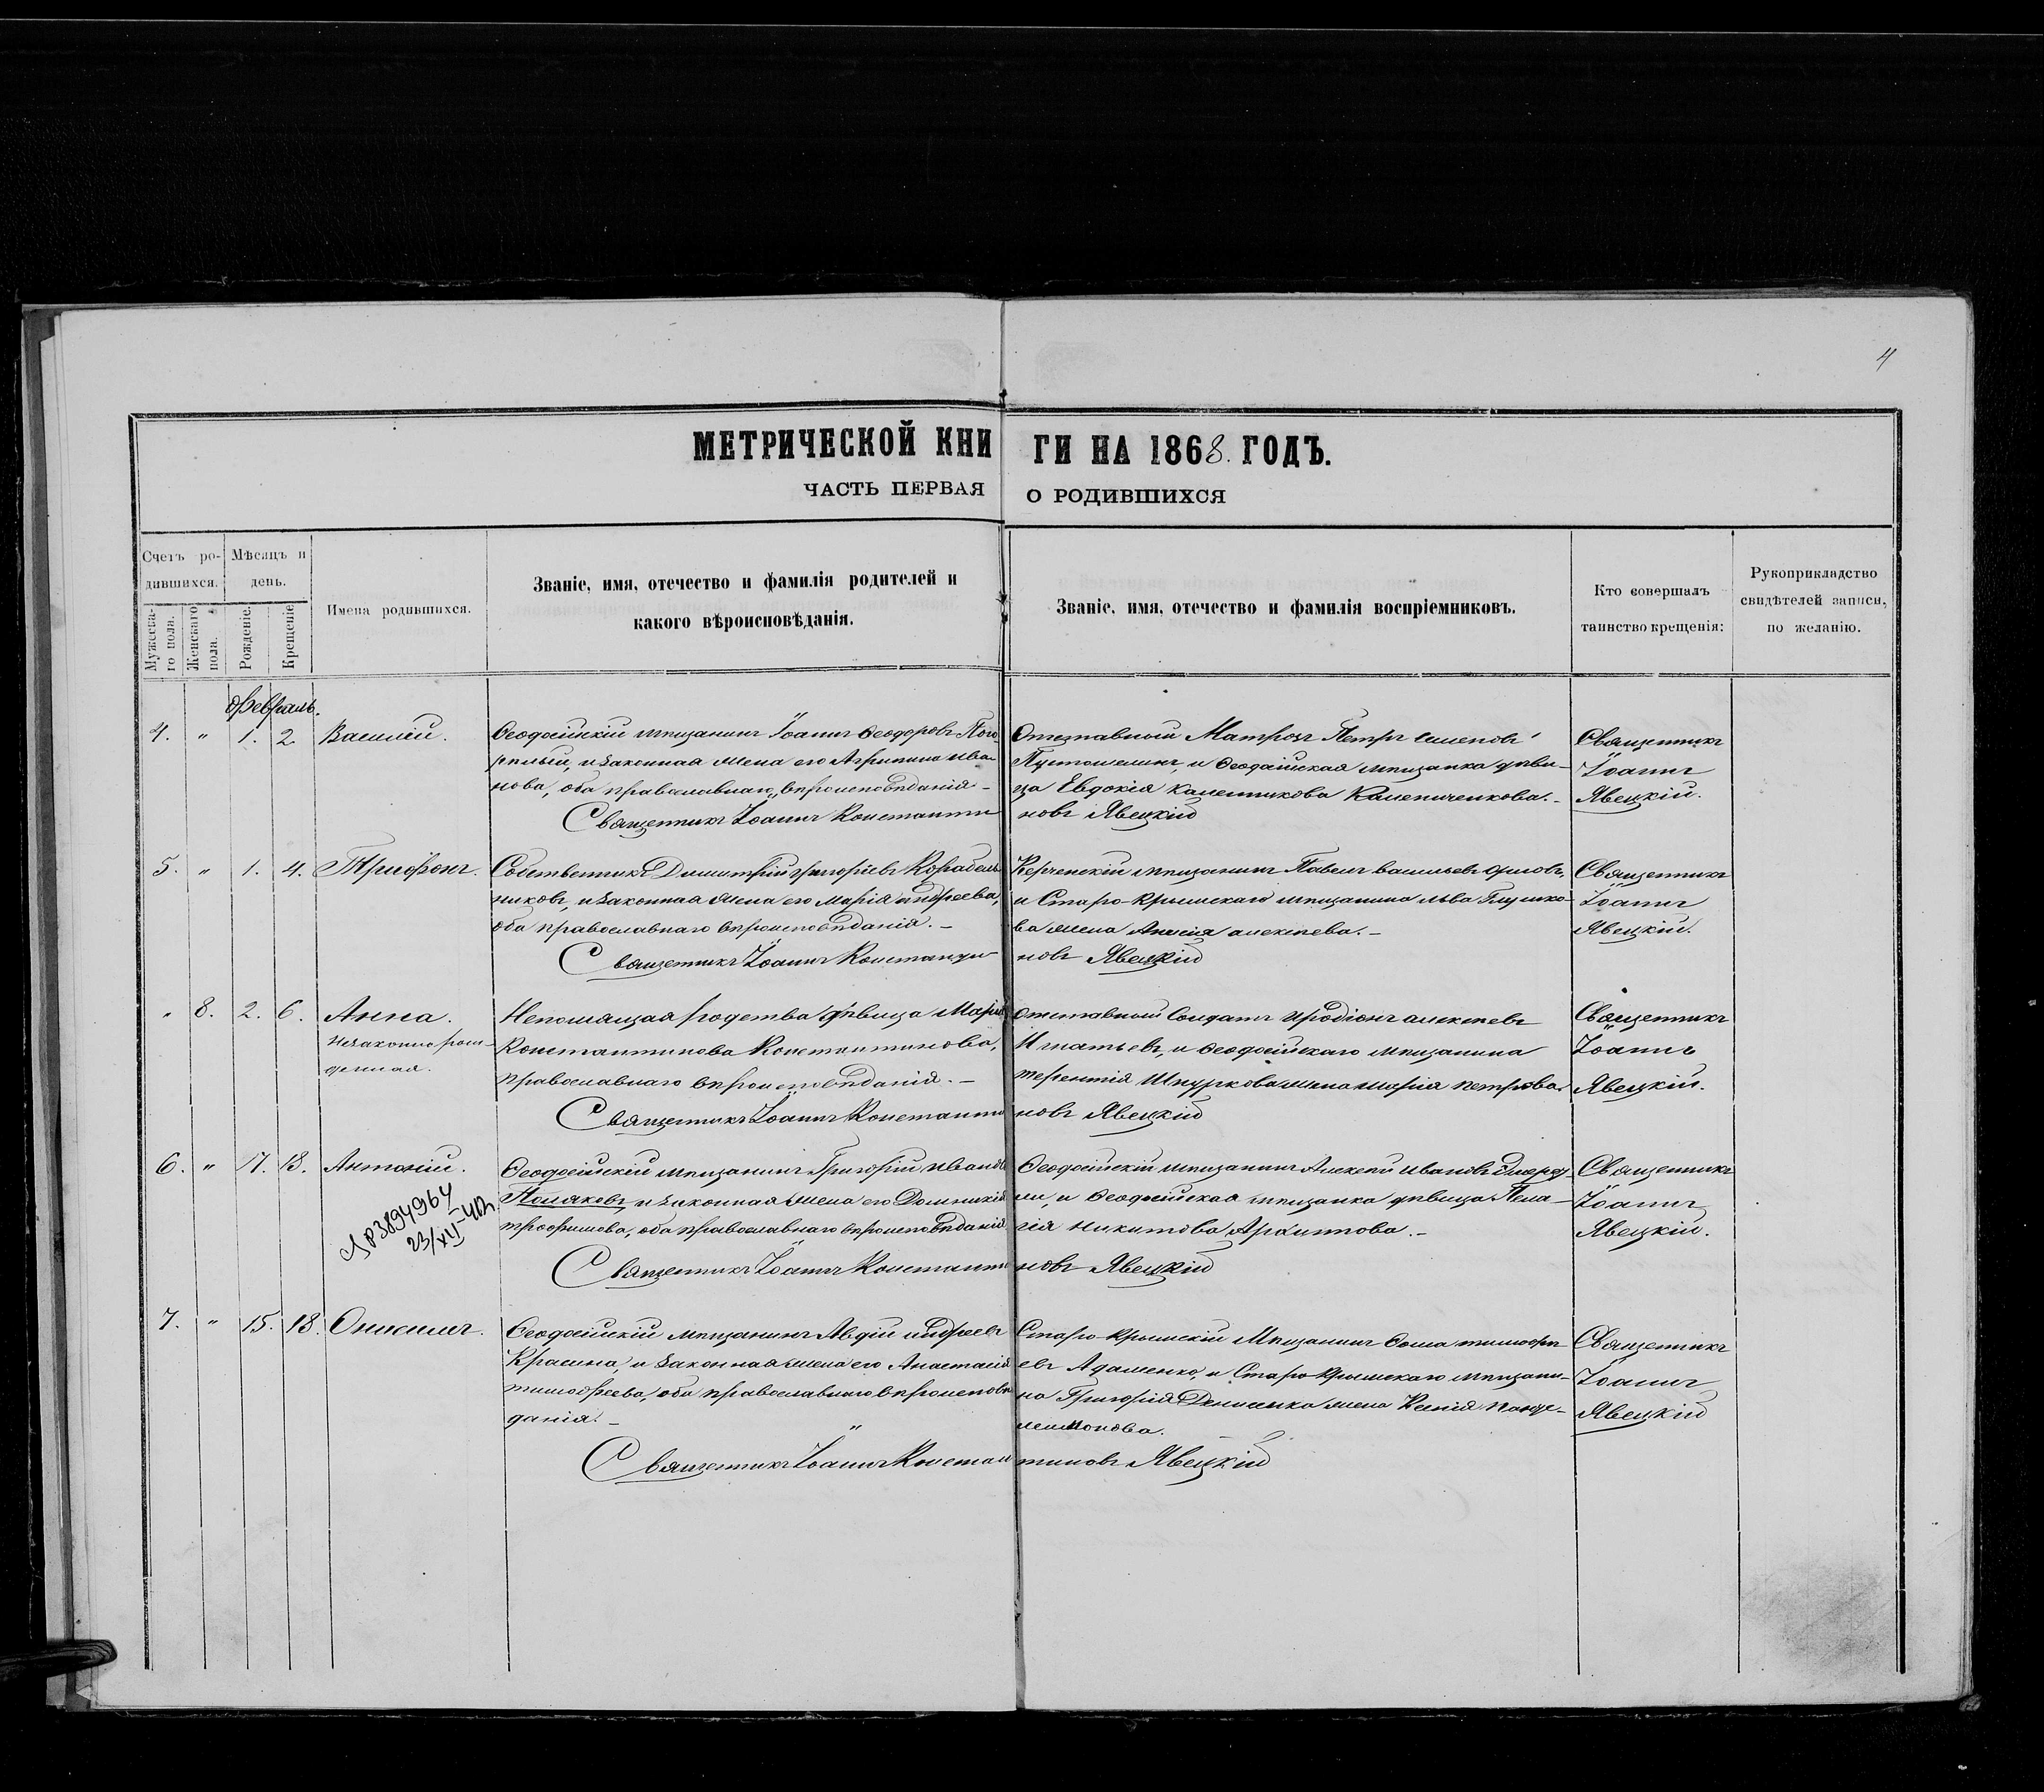 4
МЕТРИЧЕСКОЙ КНИ ГИ НА 1868. ГОДЪ.
ЧАСТЬ ПЕРВАЯ О РОДИВШИХСЯ
Счетъ ро-
дившихся.
Мужеска-
го пола.
Женскаго
пола.
Мѣсяцъ и
день.
Рожденіе.
Крещеніе
Имена родившихся.
Званіе, имя, отечество и фамилія родителей и
какого вѣроисповѣданія.
Званіе, имя, отечество и фамилія воспріемниковъ.
Кто совершалъ
таинство крещенія:
Рукоприкладство
свидѣтелей записи,
по желанію.
Февраль.
4. " 1. 2 Василій.
Ѳеодосійскій мѣщанинъ Іоаннъ Ѳеодоровъ Пого
рѣлый, и законная жена его Агрипина Ива
нова, оба православнаго вѣроисповѣданія –
Отставный Матрозъ Петръ Семеновъ
и Ѳеодосійская мѣщанка дѣви-
ца Евдокія
Священникъ
Іоаннъ
Явецкій.
Священникъ Іоаннъ Константи новъ Явецкій
5. " 1. 4. Трифонъ.
Собственникъ Димитрій Григоріевъ Корабель
никовъ, и законная жена его Марія Андреева,
оба православнаго вѣроисповѣданія. –
Керченскій мѣщанинъ Павелъ Васильевъ Орловъ,
и Старо-Крымскаго мѣщанина Льва Глушко-
ва жена Анисія Алексѣева. –
Священникъ
Іоаннъ
Явецкій.
Священникъ Іоаннъ Константи новъ Явецкій
" 8. 2. 6. Анна.
незаконнорож-
денная.
Непомнящая родства дѣвица Марія
Константинова Константинова,
православнаго вѣроисповѣданія. –
отставный Солдатъ Иродіонъ Алексѣевъ
Игнатьевъ, и Ѳеодосійскаго мѣщанина
Терентія Шпуркова жена Марія Петрова.
Священникъ
Іоаннъ
Явецкій.
Священникъ Іоаннъ Константи новъ Явецкій
6. " 17. 18. Антоній.
3894964
23/XII-40
Ѳеодосійскій мѣщанинъ Григорій Ивановъ
Поляковъ, и законная жена его Домникія
Трофимова, оба православнаго вѣроисповѣданія
Ѳеодосійскій мѣщанинъ Алексѣй Ивановъ
и Ѳеодосійская мѣщанка дѣвица Пела-
гія Никитова Архипова. –
Священникъ
Іоаннъ
Явецкій.
Священникъ Іоаннъ Константи новъ Явецкій
7. " 15. 18. Онисимъ.
Ѳеодосійскій мѣщанинъ Авдій Андреевъ
Красина, и законная жена его Анастасія
Тимоѳеева, оба православнаго вѣроисповѣ
данія. –
Старо-Крымскій Мѣщанинъ Ѳома Тимоѳѣ
евъ Адаменко, и Старо-Крымскаго мѣщани-
на Григорія Денисенка жена Ксенія Панде-
леимонова.
Священникъ
Іоаннъ
Явецкій
Священникъ Іоаннъ Констан тиновъ Явецкій